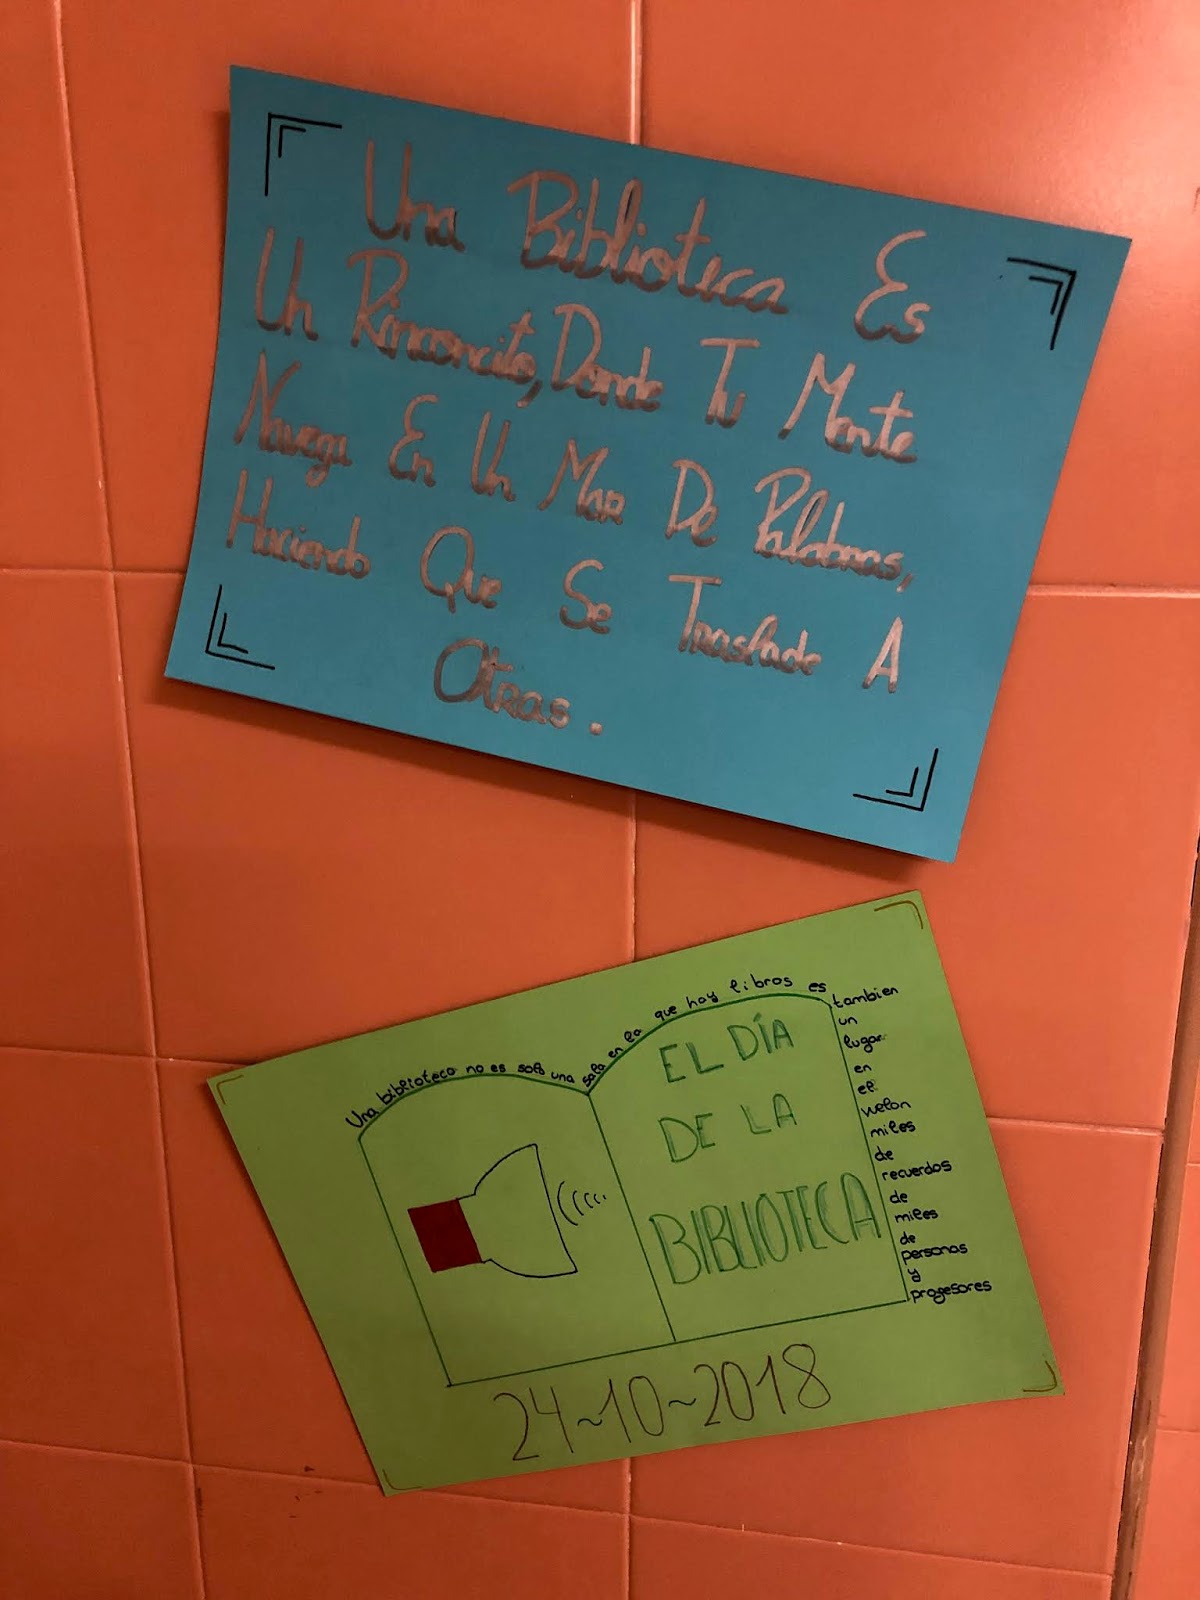 Una Biblioteca Es
Un Rinconcito, Donde Tu Mente
Navega En Un Mar De Palabras,
Haciendo Que Se Traslade A
Otras.
Una biblioteca no es solo una sala en la que hay libros es
tambien
un
lugar
en
el
velon
miles
de
recuerdos
de
miles
de
personas
y
profesores
EL DÍA
DE LA
BIBLIOTECA
24~10~2018